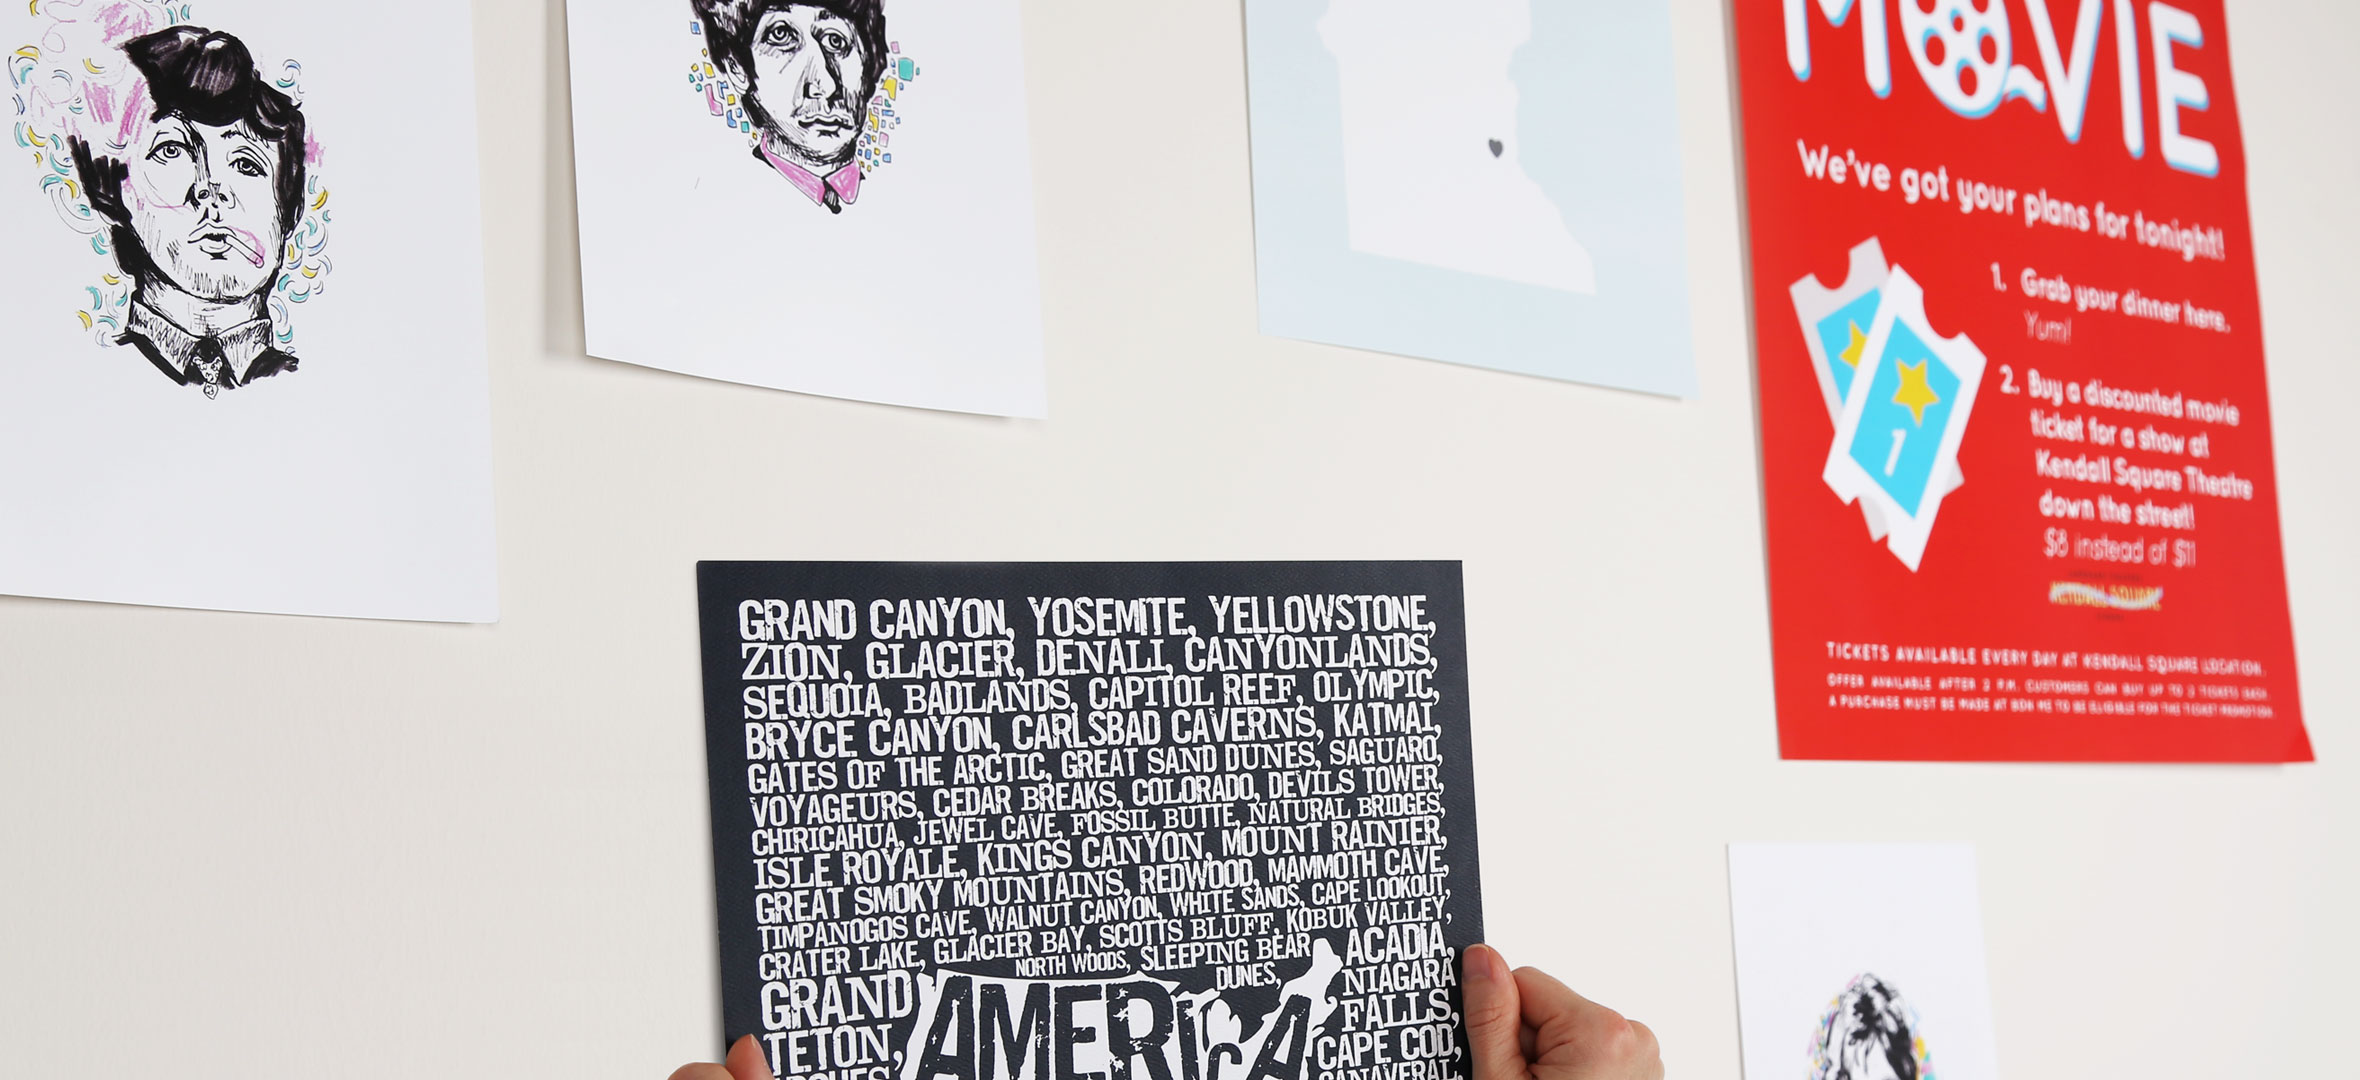 MOVIE
We've got your plans for tonight!
1. Grab your dinner here.
Yum!
2. Buy a discounted movie
ticket for a show at
Kendall Square Theatre
down the street!
$8 instead of $11
KENDALL SQUARE
TICKETS AVAILABLE EVERY DAY AT KENDALL SQUARE LOCATION.
OFFER AVAILABLE AFTER 2 P.M. CUSTOMERS CAN BUY UP TO 2 TICKETS EACH.
A PURCHASE MUST BE MADE AT BON ME TO BE ELIGIBLE FOR THE TICKET PROMOTION.
1
GRAND CANYON, YOSEMITE, YELLOWSTONE,
ZION, GLACIER, DENALI, CANYONLANDS,
SEQUOIA, BADLANDS, CAPITOL REEF, OLYMPIC,
BRYCE CANYON, CARLSBAD CAVERNS, KATMAI,
GATES OF THE ARCTIC, GREAT SAND DUNES, SAGUARO,
VOYAGEURS, CEDAR BREAKS, COLORADO, DEVILS TOWER,
CHIRICAHUA, JEWEL CAVE, FOSSIL BUTTE, NATURAL BRIDGES,
ISLE ROYALE, KINGS CANYON, MOUNT RAINIER,
GREAT SMOKY MOUNTAINS, REDWOOD, MAMMOTH CAVE,
TIMPANOGOS CAVE, WALNUT CANYON, WHITE SANDS, CAPE LOOKOUT,
CRATER LAKE, GLACIER BAY, SCOTTS BLUFF, KOBUK VALLEY,
NORTH WOODS, SLEEPING BEAR
DUNES,
ACADIA,
NIAGARA
FALLS,
CAPE COD,
CANAVERAL,
GRAND
TETON,
ARCHES
AMERICA